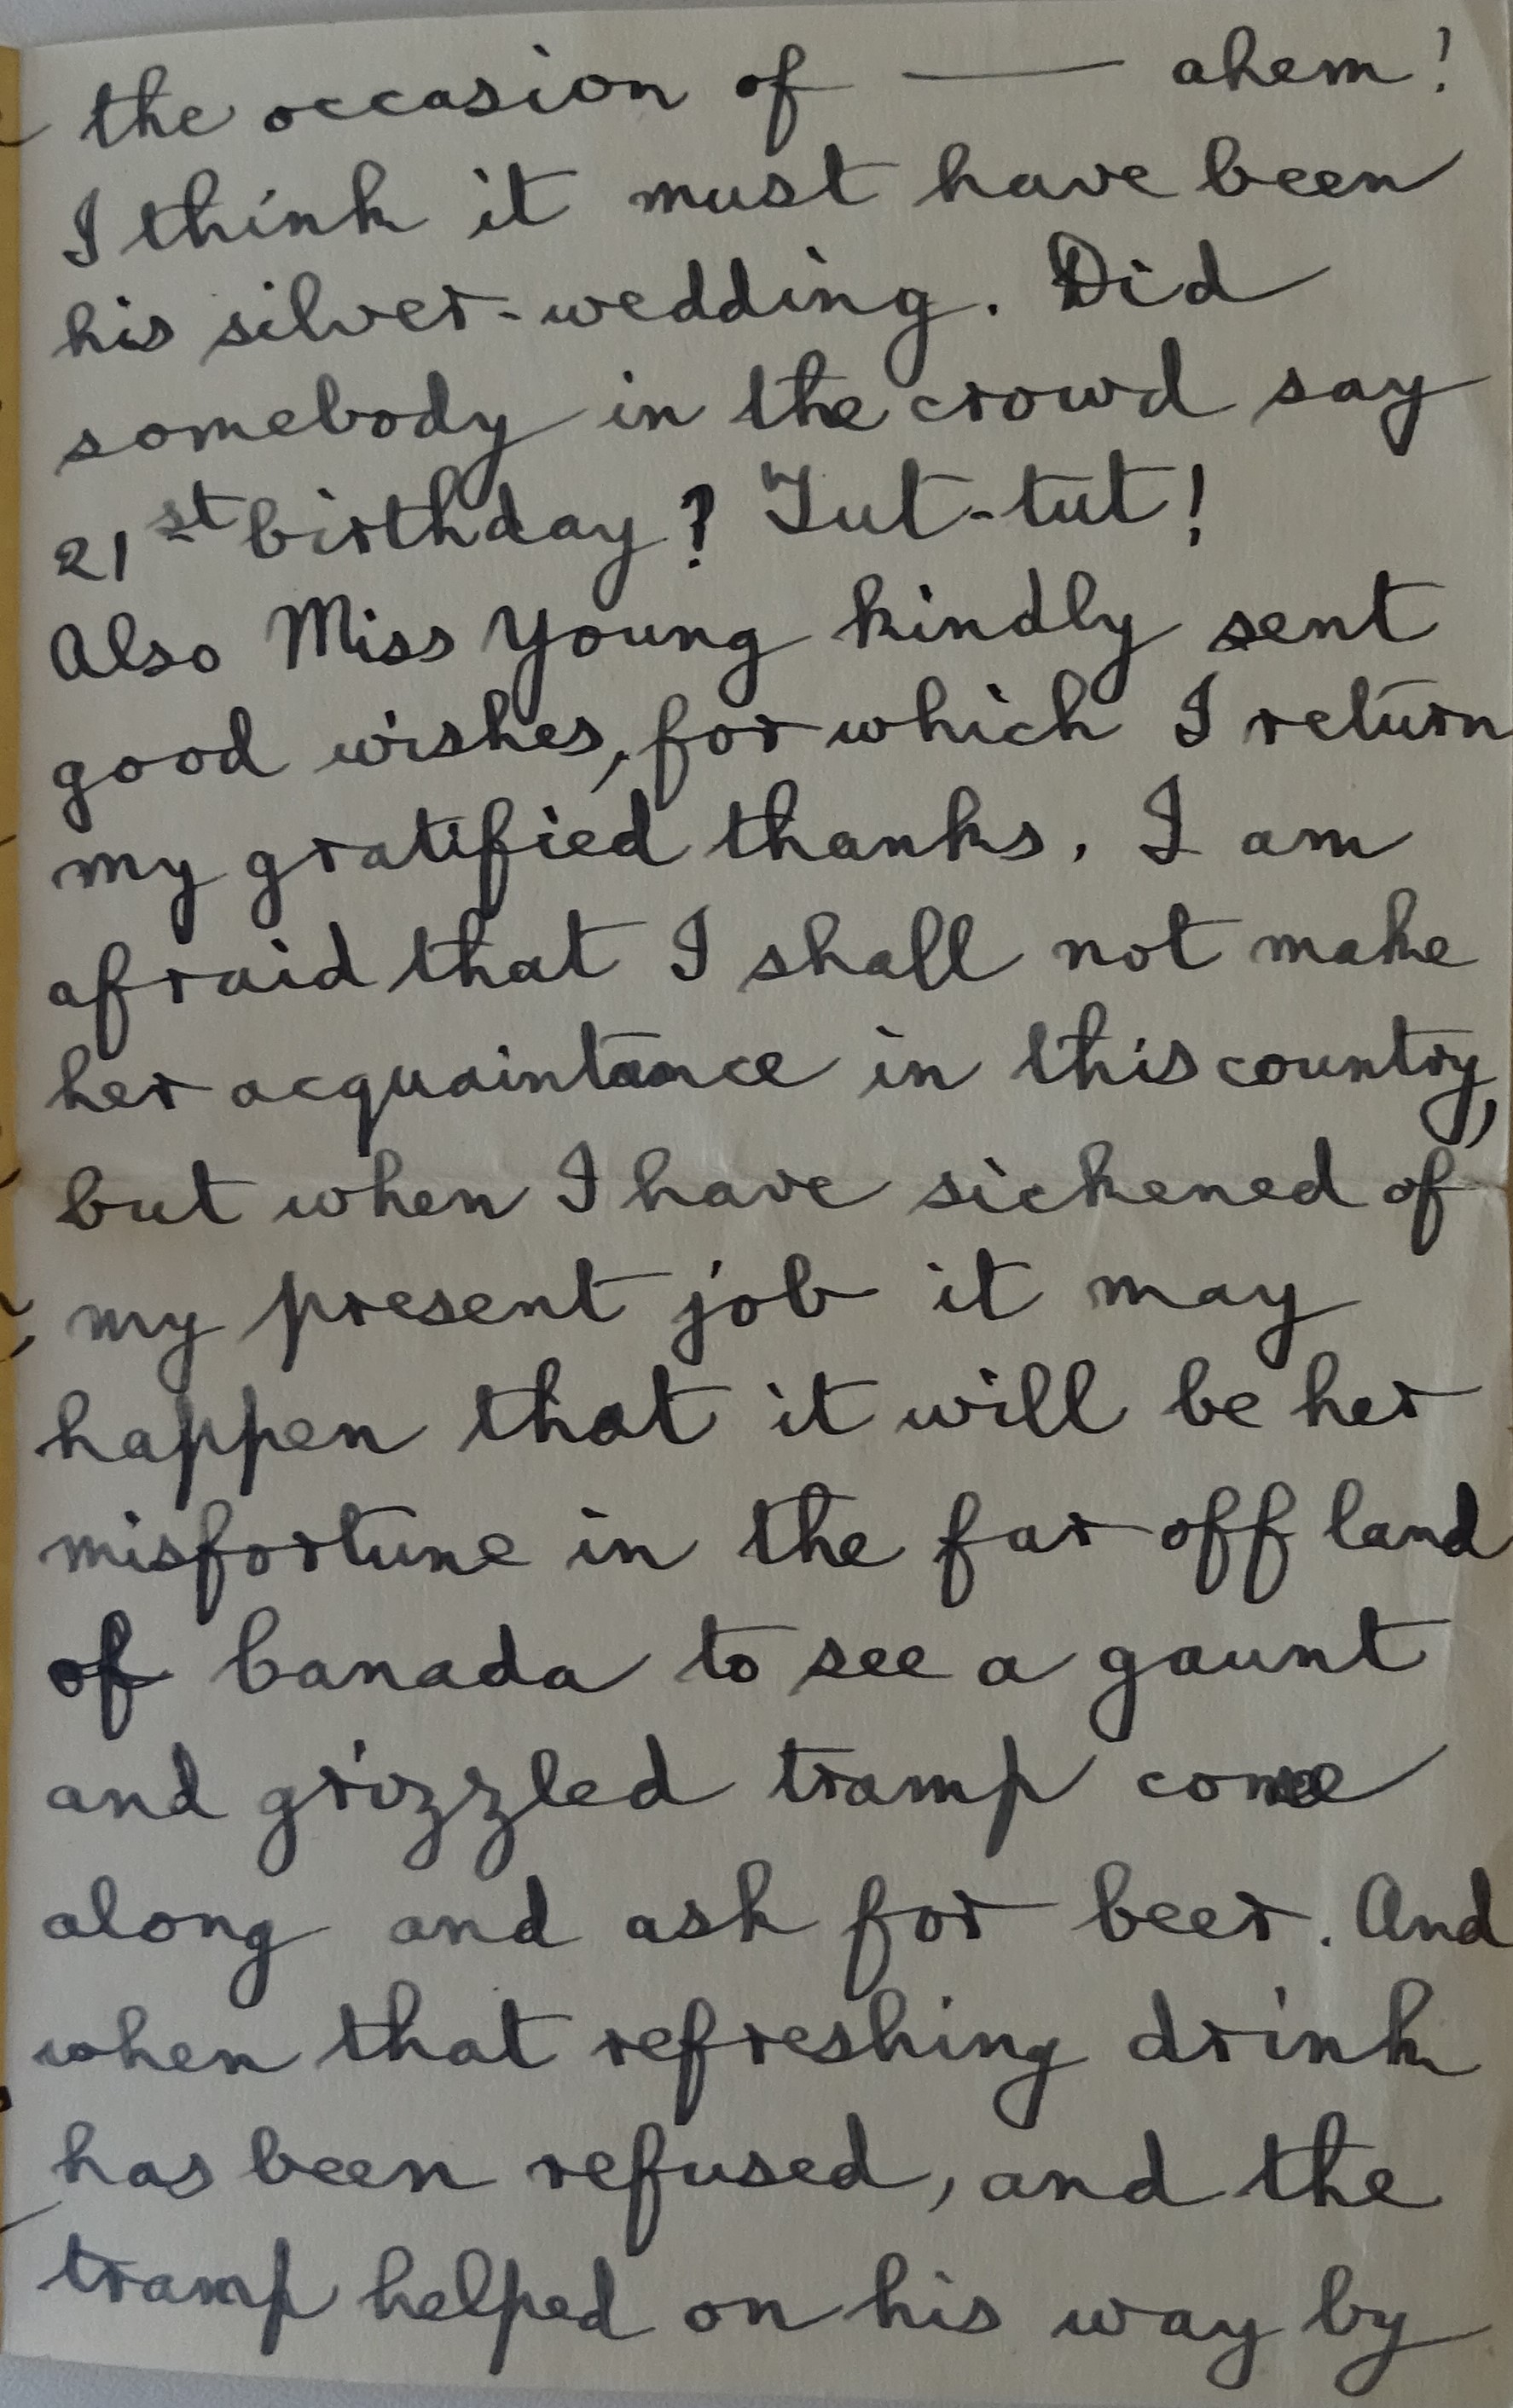 the occasion of —— ahem!
I think it must have been
his silver-wedding. Did
somebody in the crowd say
21st birthday? Tut-tut!
Also Miss Young kindly sent
good wishes, for which I return
my gratified thanks. I am
afraid that I shall not make
her acquaintance in this country,
but when I have sickened of
my present job it may
happen that it will be her
misfortune in the far off land
of Canada to see a gaunt
and grizzled tramp come
along and ask for beer. And
when that refreshing drink
has been refused, and the
tramp helped on his way by